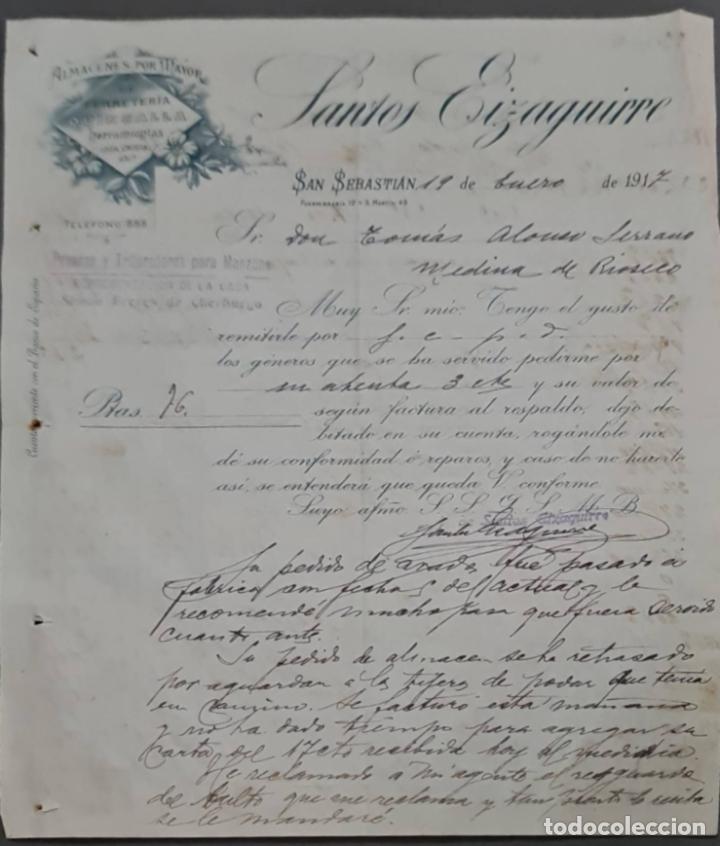 ALMACENES POR MAYOR
DE
FERRETERÍA
QUINCALLA
Herramientas
TELÉFONO 588
Santos Eizaguirre
SAN SEBASTIÁN, 19 de Enero de 1917
Sr. Don Tomás Alonso Serrano
Medina de Rioseco
Prensas y Trituradoras para Manzana
REPRESENTACION DE LA CASA
Simon Frères, de Cherbourg
Cuenta corriente con el Banco de España
Muy Sr. mío: Tengo el gusto de
remitirle por f. c. p. d.
los géneros que se ha servido pedirme por
su atenta 3 cte y su valor de
Ptas. 76.
según factura al respaldo, dejo de-
bitado en su cuenta, rogándole me
dé su conformidad ó reparos, y caso de no hacerlo
así, se entenderá que queda V. conforme
Suyo afmo. S. S. Q. S. M. B.
Santos Eizaguirre
Su pedido de arados, fue pasado a
fabrica con fecha 5 del actual y le
recomende mucho para que fuera servido
cuanto antes.
Su pedido de almacen se ha retrasado
por aguardar a las tijeras de podar que tenia
en camino. Se facturó esta mañana
y no ha dado tiempo para agregar su
carta del 17 cto recibida hoy al mediodia.
He reclamado a mi agente el resguardo
del bulto que me reclama y tan pronto lo remita
se le mandaré.
todocoleccion